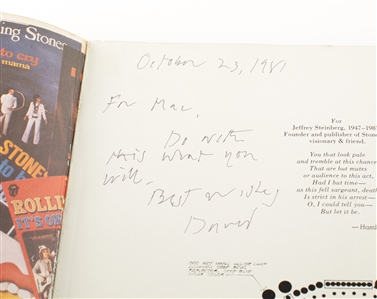 ing Stones
to cry
mama
STONES
ROLLI
IT'S ON
October 23, 1981
For Mac,
Do with
this what you
will.
Best wishes
David
For
Jeffrey Steinberg, 1947–198
Founder and publisher of Stone
visionary & friend.
You that look pale
and tremble at this chance
That are but mutes
or audience to this act,
Had I but time—
as this fell sergeant, death
Is strict in his arrest—
O, I could tell you—
But let it be.
— Haml